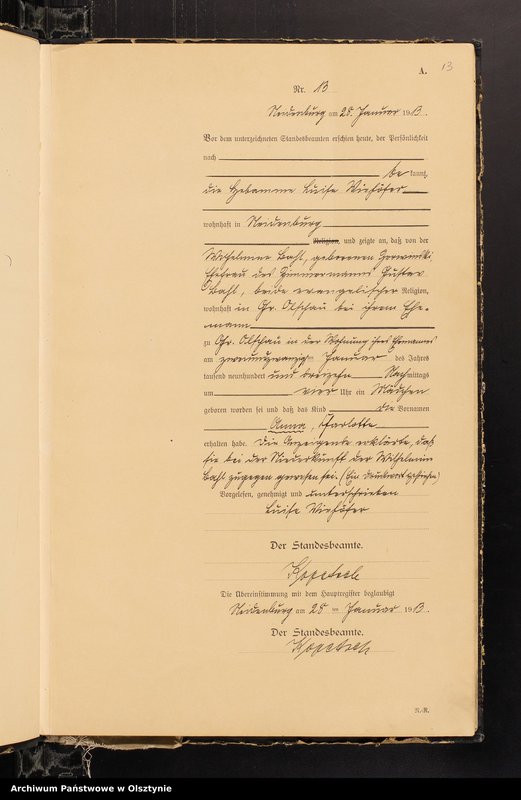 A.
13
Nr. 13
Neidenburg am 25. Januar 1913.
Vor dem unterzeichneten Standesbeamten erschien heute, der Persönlichkeit
nach
be kannt,
die Hebamme Luise
wohnhaft in Neidenburg
Religion, und zeigte an, daß von der
Wilhelmine Bahl, geborenen
Ehefrau des Zimmermanns Gustav
Bahl, beide evangelischer Religion,
wohnhaft in Gr. Olschau bei ihrem Ehe-
manne
zu Gr. Olschau in der Wohnung ihres Ehemannes
am zweiundzwanzigsten Januar des Jahres
tausend neunhundert und dreizehn Nachmittags
um vier Uhr ein Mädchen
geboren worden sei und daß das Kind die Vornamen
Anna, Charlotte
erhalten habe. Die Anzeigende erklärte, daß
sie bei der Niederkunft der Wilhelmine
Bahl zugegen gewesen sei. (Ein Druckwort gestrichen)
Vorgelesen, genehmigt und unterschrieben
Luise
Der Standesbeamte.
Kopetsch
Die Übereinstimmung mit dem Hauptregister beglaubigt
Neidenburg am 25 ten Januar 1913.
Der Standesbeamte.
Kopetsch
R.-R.
Archiwum Państwowe w Olsztynie